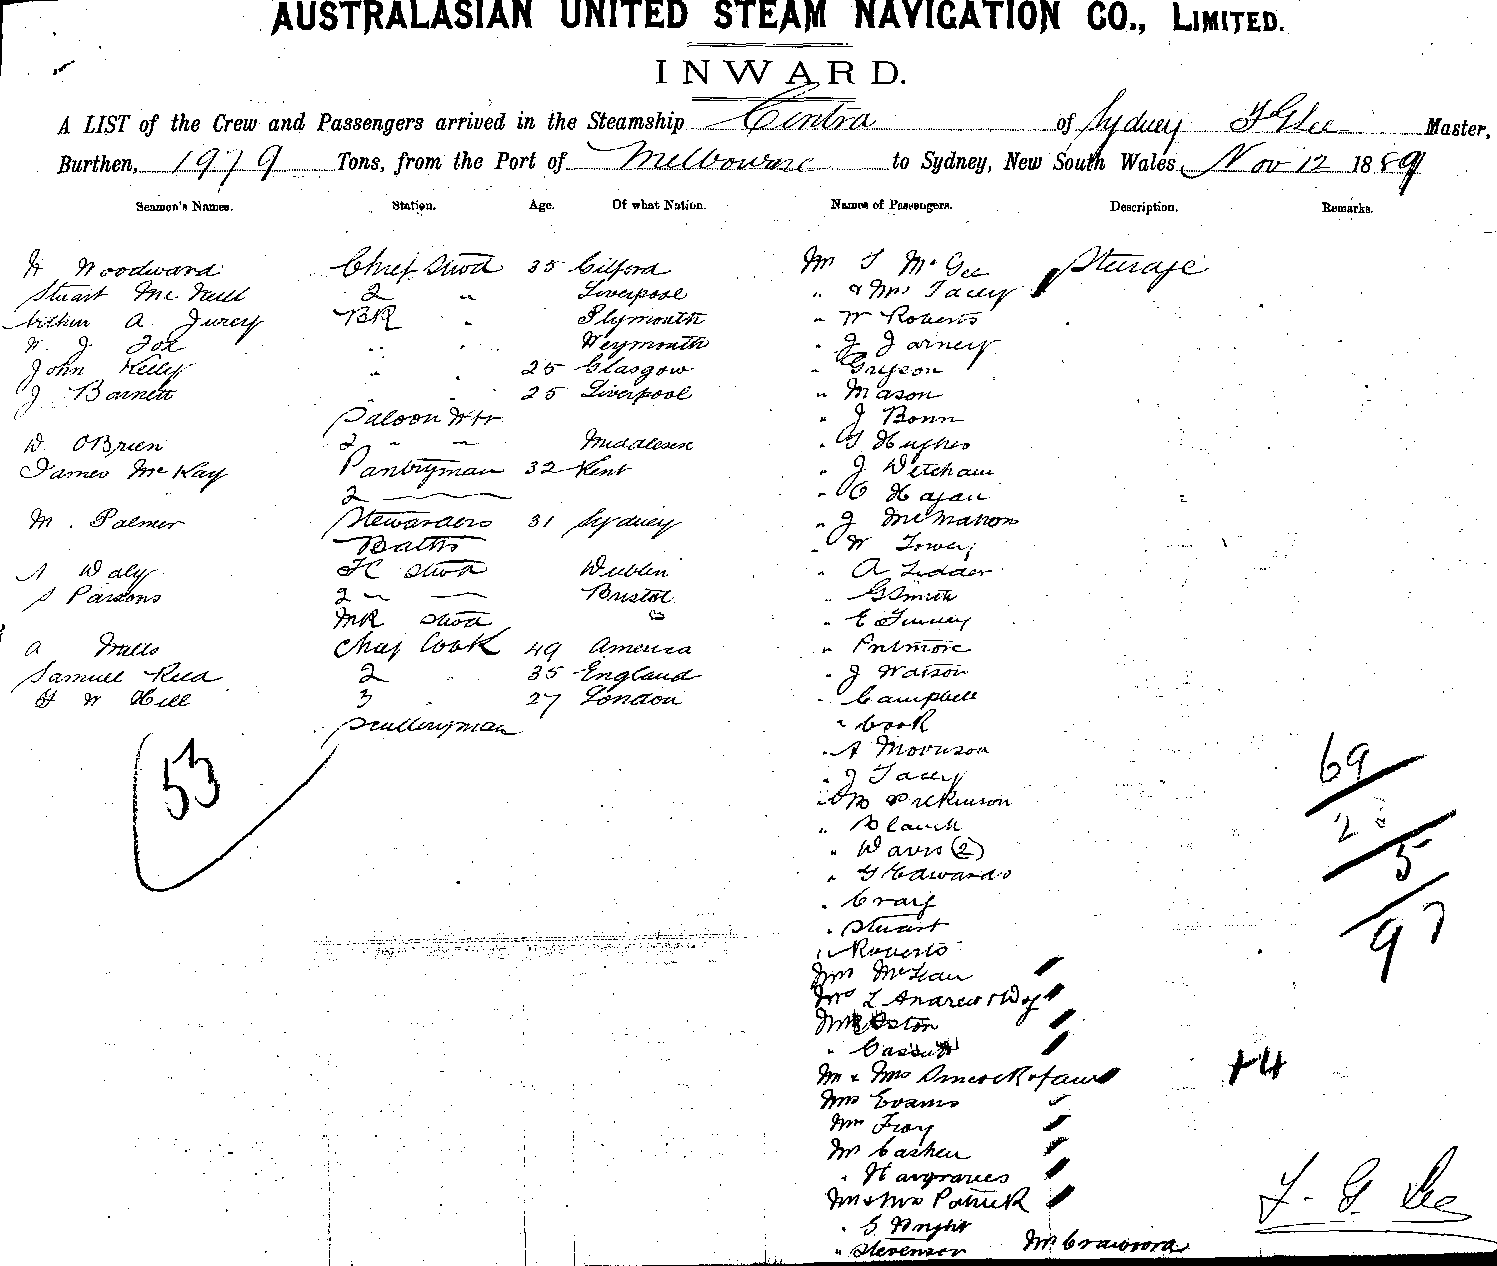 AUSTRALASIAN UNITED STEAM NAVIGATION CO., LIMITED.
INWARD.
A LIST of the Crew and Passengers arrived in the Steamship Cintra of Sydney F G Lee Master,
Burthen, 1979 Tons, from the Port of Melbourne to Sydney, New South Wales, Nov 12 1889
Seamen's Names. Station. Age. Of what Nation. Names of Passengers. Description. Remarks.
H Woodward Chief Stwd 35 Gilford Mr T McGee Steerage
Stuart McNeill 2 " Liverpool " & Mrs Tacey
Arthur A Jurey BR " Plymouth " W Roberts
W. J. Fox " " Weymouth " J Jarney
John Kelly " " 25 Glasgow " Gryson
J Barnett " " 25 Liverpool " Mason
Saloon Wtr " J Bonn
W. OBrien 2 " " Middlesex " G Hughes
James McKay Pantryman 32 Kent " J Witcham
2 " C Hagan
M. Palmer Stewardess 31 Sydney " J McMahon
Baths " W Tower
A Daly FC Stwd Dublin " A Lidder
S Parsons 2 Bristol " G Smith
MR Stwd " E Tunney
A Mills Chief Cook 49 America "
Samuel Reed 2 35 England " J Watson
G W Hill 3 " 27 London " Campbell
Sculleryman " Cook
53
" A Morrison
" J Tacey
" Dickinson
" Clauch
" Davis (2)
" G Edwards
" Craig
" Stuart
" Roberts
69
2
5
97
Mrs McLean
Mrs L Andrews & Dg
Mrs Aston
" Cassill
Mr & Mrs Simcock & fam
+4
Mrs Evans
Mrs Troy
Mr Cashen
" Hargraves
Mr & Mrs Patrick
" G Wright
" Stevenson Mr Crawford
F. G. Lee